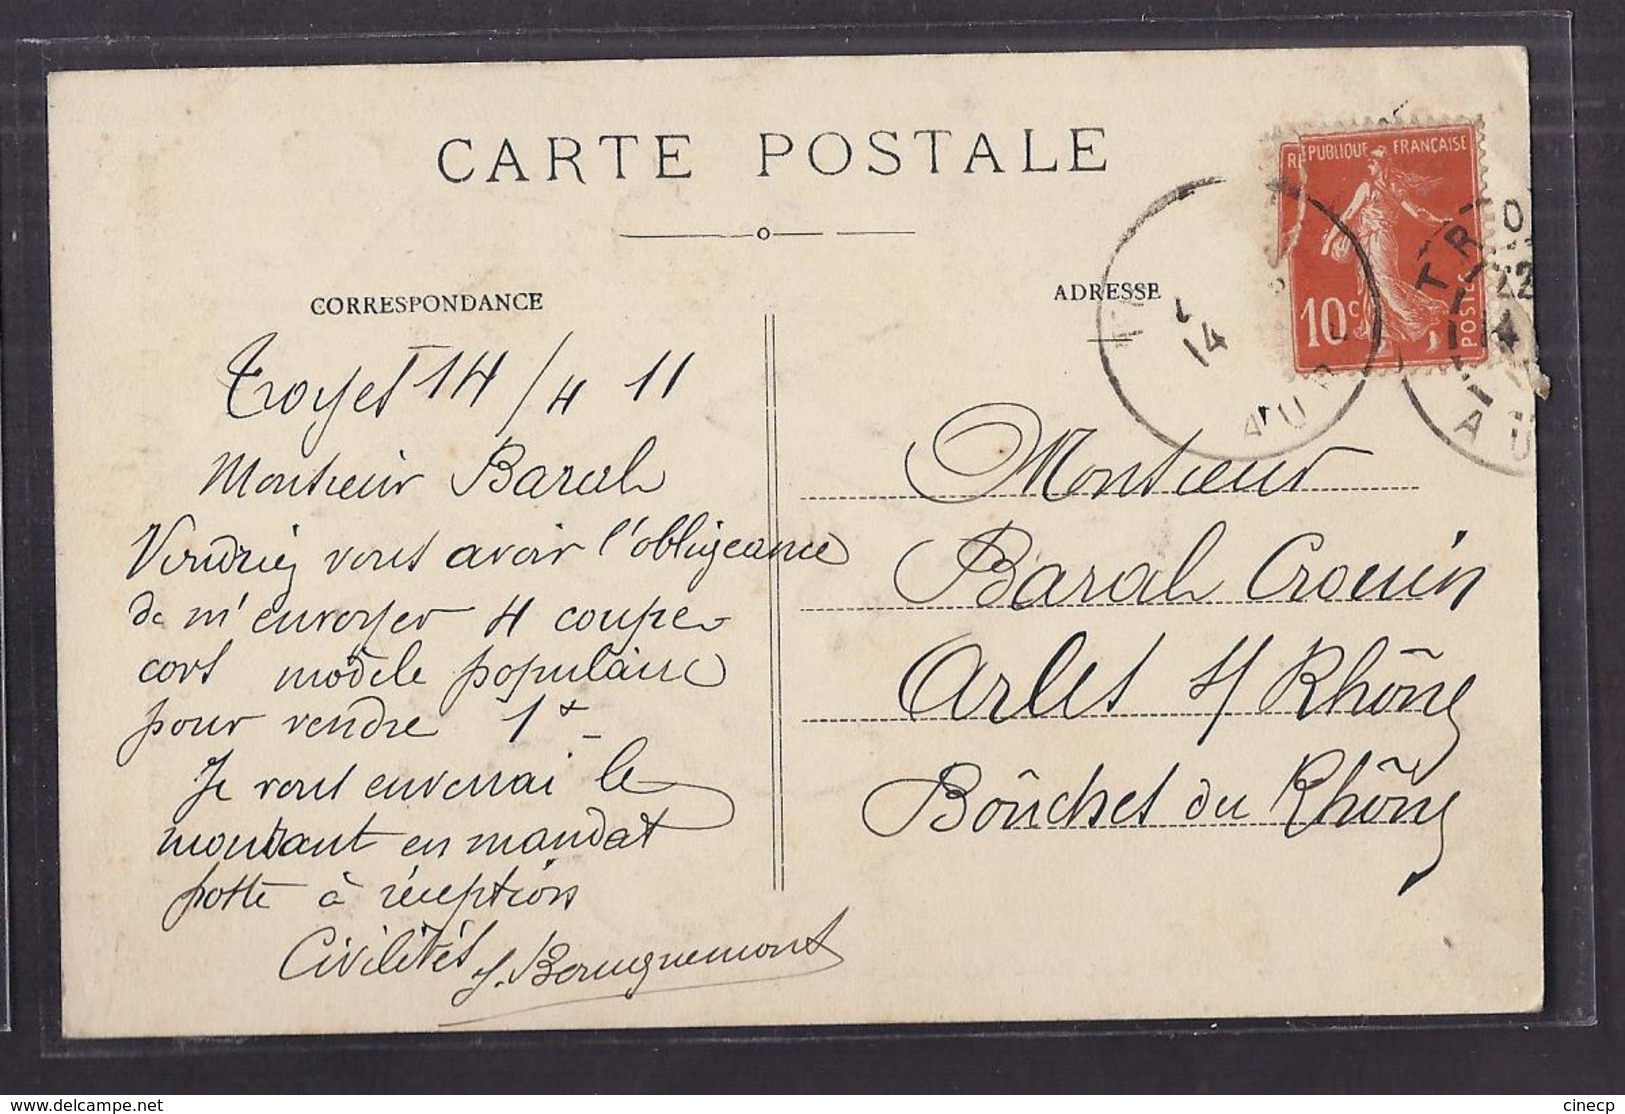 CARTE POSTALE
RÉPUBLIQUE FRANÇAISE
10c
POSTES
CORRESPONDANCE
ADRESSE
14
AUB
TRO
22
AU
Troyes 14/4 11
Monsieur Baral
Voudriez vous avoir l'obligeance
de m'envoyer 4 coupe
cors modèle populaire
pour vendre 1
Je vous enverrai le
montant en mandat
poste à réception
Civilités
Monsieur
Baral Crouin
Arles s/ Rhône
Bouches du Rhône
www.delcampe.net
cinecp